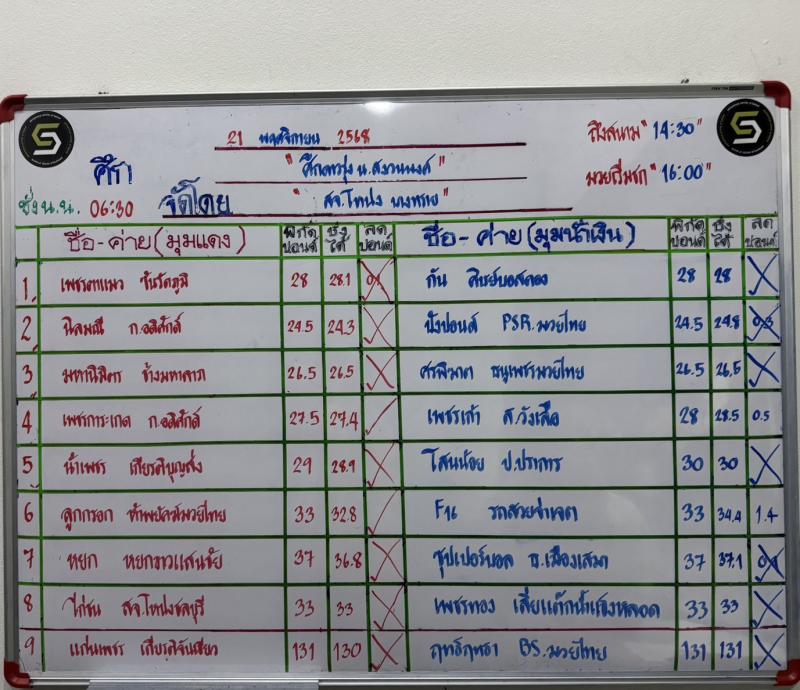 21 พฤศจิกายน 2568
ถึงสนาม "14:30"
ศึก "ศึกดาวรุ่ง น.สงวนพงศ์"
มวยเริ่มชก "16:00"
ชั่งน.น. 06:30 จัดโดย "สจ.โหน่ง บางทราย"
ชื่อ - ค่าย (มุมแดง) พิกัดปอนด์ ชั่งได้ ลดปอนด์ ชื่อ - ค่าย (มุมน้ำเงิน) พิกัดปอนด์ ชั่งได้ ลดปอนด์
1 เพชรตาแมว 28 28.1 0.1 กัน ศิษย์บอสคลอง 28 28
2 นิลมณี ก.อดิศักดิ์ 24.5 24.3 ปังปอนด์ PSR.มวยไทย 24.5 24.8 0.3
3 มหานิมิตร ช้างมหาลาภ 26.5 26.5 ศรพิฆาต ธนูเพชรมวยไทย 26.5 26.5
4 เพชรการะเกด ก.อดิศักดิ์ 27.5 27.4 เพชรเก้า ส.วังเสือ 28 28.5 0.5
5 น้ำเพชร 29 28.9 โสนน้อย ป.ปราการ 30 30
6 ลูกกรอก 33 32.8 รถสวยจำเจต 33 34.4 1.4
7 หยก หยกขาวแสนชัย 37 36.8 ซุปเปอร์บอล อ.เมืองเสมา 37 37.1 0.1
8 ไก่ชน สจ.โหน่งชลบุรี 33 33 เพชรทอง เสี่ยแต๊กน้ำแข็งหลอด 33 33
9 แก่นเพชร 131 130 ฤทธิ์ฤทธา BS.มวยไทย 131 131